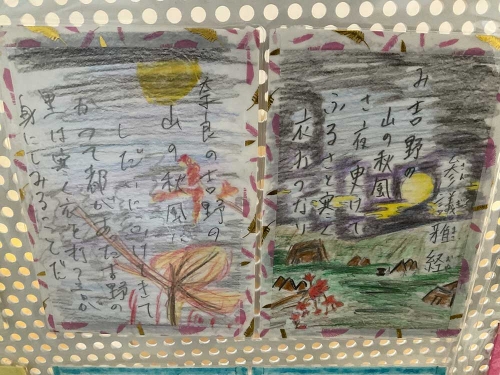 参議雅経
み吉野の
山の秋風
さ夜更けて
ふるさと寒く
衣うつなり
奈良の吉野の
山の秋風に
しだいに ふけてきて
かつて都があった吉野の
里は寒く衣を打つ音が
身にしみることだ